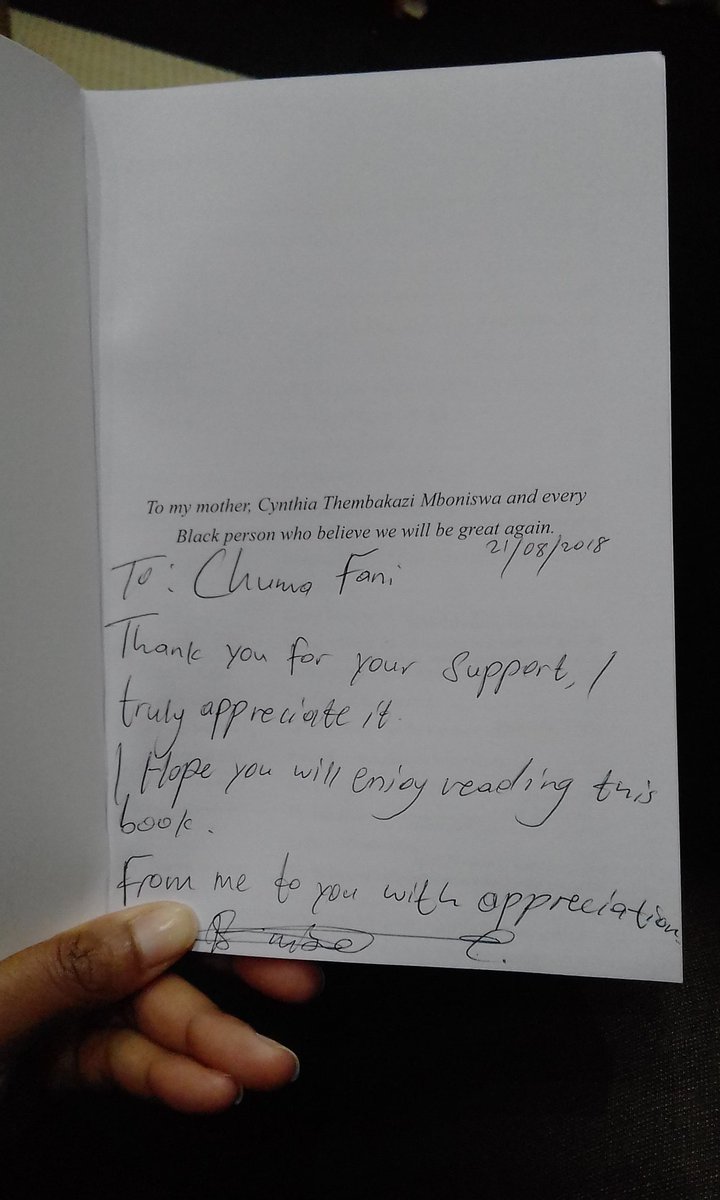 To my mother, Cynthia Thembakazi Mboniswa and every
Black person who believe we will be great again.
21/08/2018
To: Chuma Fani
Thank you for your support, I
truly appreciate it.
I Hope you will enjoy reading this
book.
From me to you with appreciation